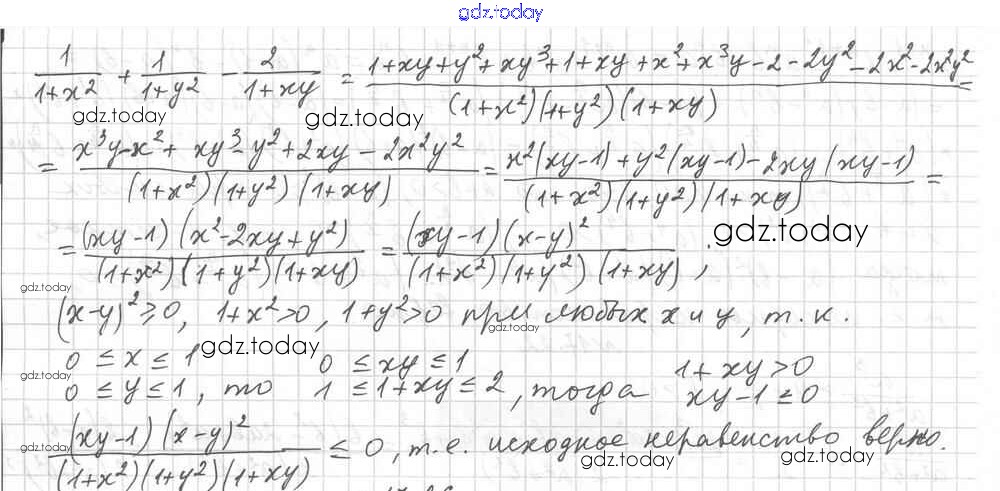 gdz.today
1/(1+x²) + 1/(1+y²) - 2/(1+xy) = (1+xy+y²+xy³+1+xy+x²+x³y-2-2y²-2x²-2x²y²)/((1+x²)(1+y²)(1+xy)) =
gdz.today gdz.today
= (x³y-x²+xy³-y²+2xy-2x²y²)/((1+x²)(1+y²)(1+xy)) = (x²(xy-1)+y²(xy-1)-2xy(xy-1))/((1+x²)(1+y²)(1+xy)) =
= ((xy-1)(x²-2xy+y²))/((1+x²)(1+y²)(1+xy)) = ((xy-1)(x-y)²)/((1+x²)(1+y²)(1+xy)),
gdz.today
gdz.today
(x-y)²≥0, 1+x²>0, 1+y²>0 при любых x и y, т.к.
gdz.today
0≤x≤1 0≤xy≤1 1+xy>0
gdz.today
gdz.today gdz.today
0≤y≤1, то 1≤1+xy≤2, тогда xy-1≤0
((xy-1)(x-y)²)/((1+x²)(1+y²)(1+xy)) ≤ 0, т.е. исходное неравенство верно.
gdz.today gdz.today gdz.today